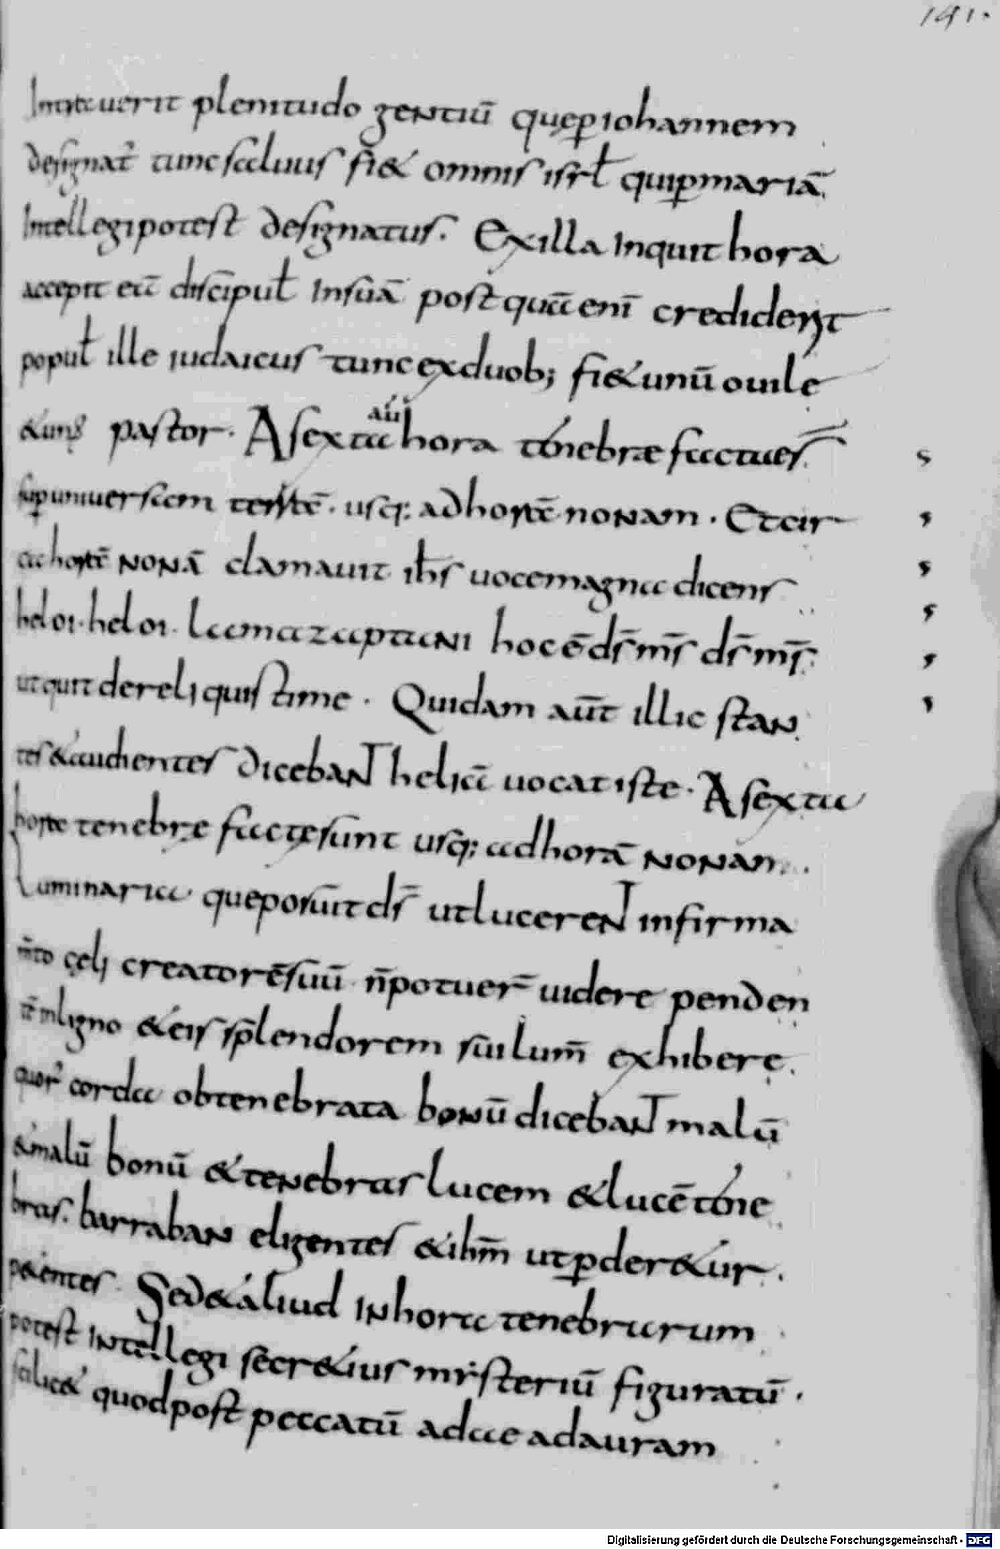 141.
Intrauerit plenitudo gentiū quę p iohannem
designat᷑ tunc saluus fi& omnis isrł qui p mariā
Intellegi potest designatus. Ex illa inquit hora
accepit eā discipuł In suā postquā enī crediderit
populł ille iudaicus tunc ex duob; fi& unū ouile
& un᷒ pastor. A sexta aū hora tenebrae factaeſ̄
sup uniuersam terrā. usq; ad horā nonam. Et cir
ca horā nonā clamauit ih̄s uoce magna dicens
heloi. heloi. lama zaptani hoc ē d̄s m̄s d̄s m̄s
ut quit dereliquisti me. Quidam aūt illic stan
tes & audientes dicebant heliā uocat iste. A sexta
hora tenebrę factę sunt usq; ad horā nonam.
Luminaria que posuit d̄s ut lucerent in firma
m̄to cęli creatorē suū n̄ potuer̄ uidere penden
tē In ligno & eis splendorem sui lum̄ exhibere.
quor᷑ corda obtenebrata bonū dicebant malū
& malū bonū & tenebras lucem & lucē tene
bras. barraban eligentes & ih̄m ut pder&ur.
p&entes. Sed & aliud in hora tenebrarum
potest intellegi secr&ius mysteriū figuratū.
scilic& quod post peccatū adae ad auram
Digitalisierung gefördert durch die Deutsche Forschungsgemeinschaft - DFG